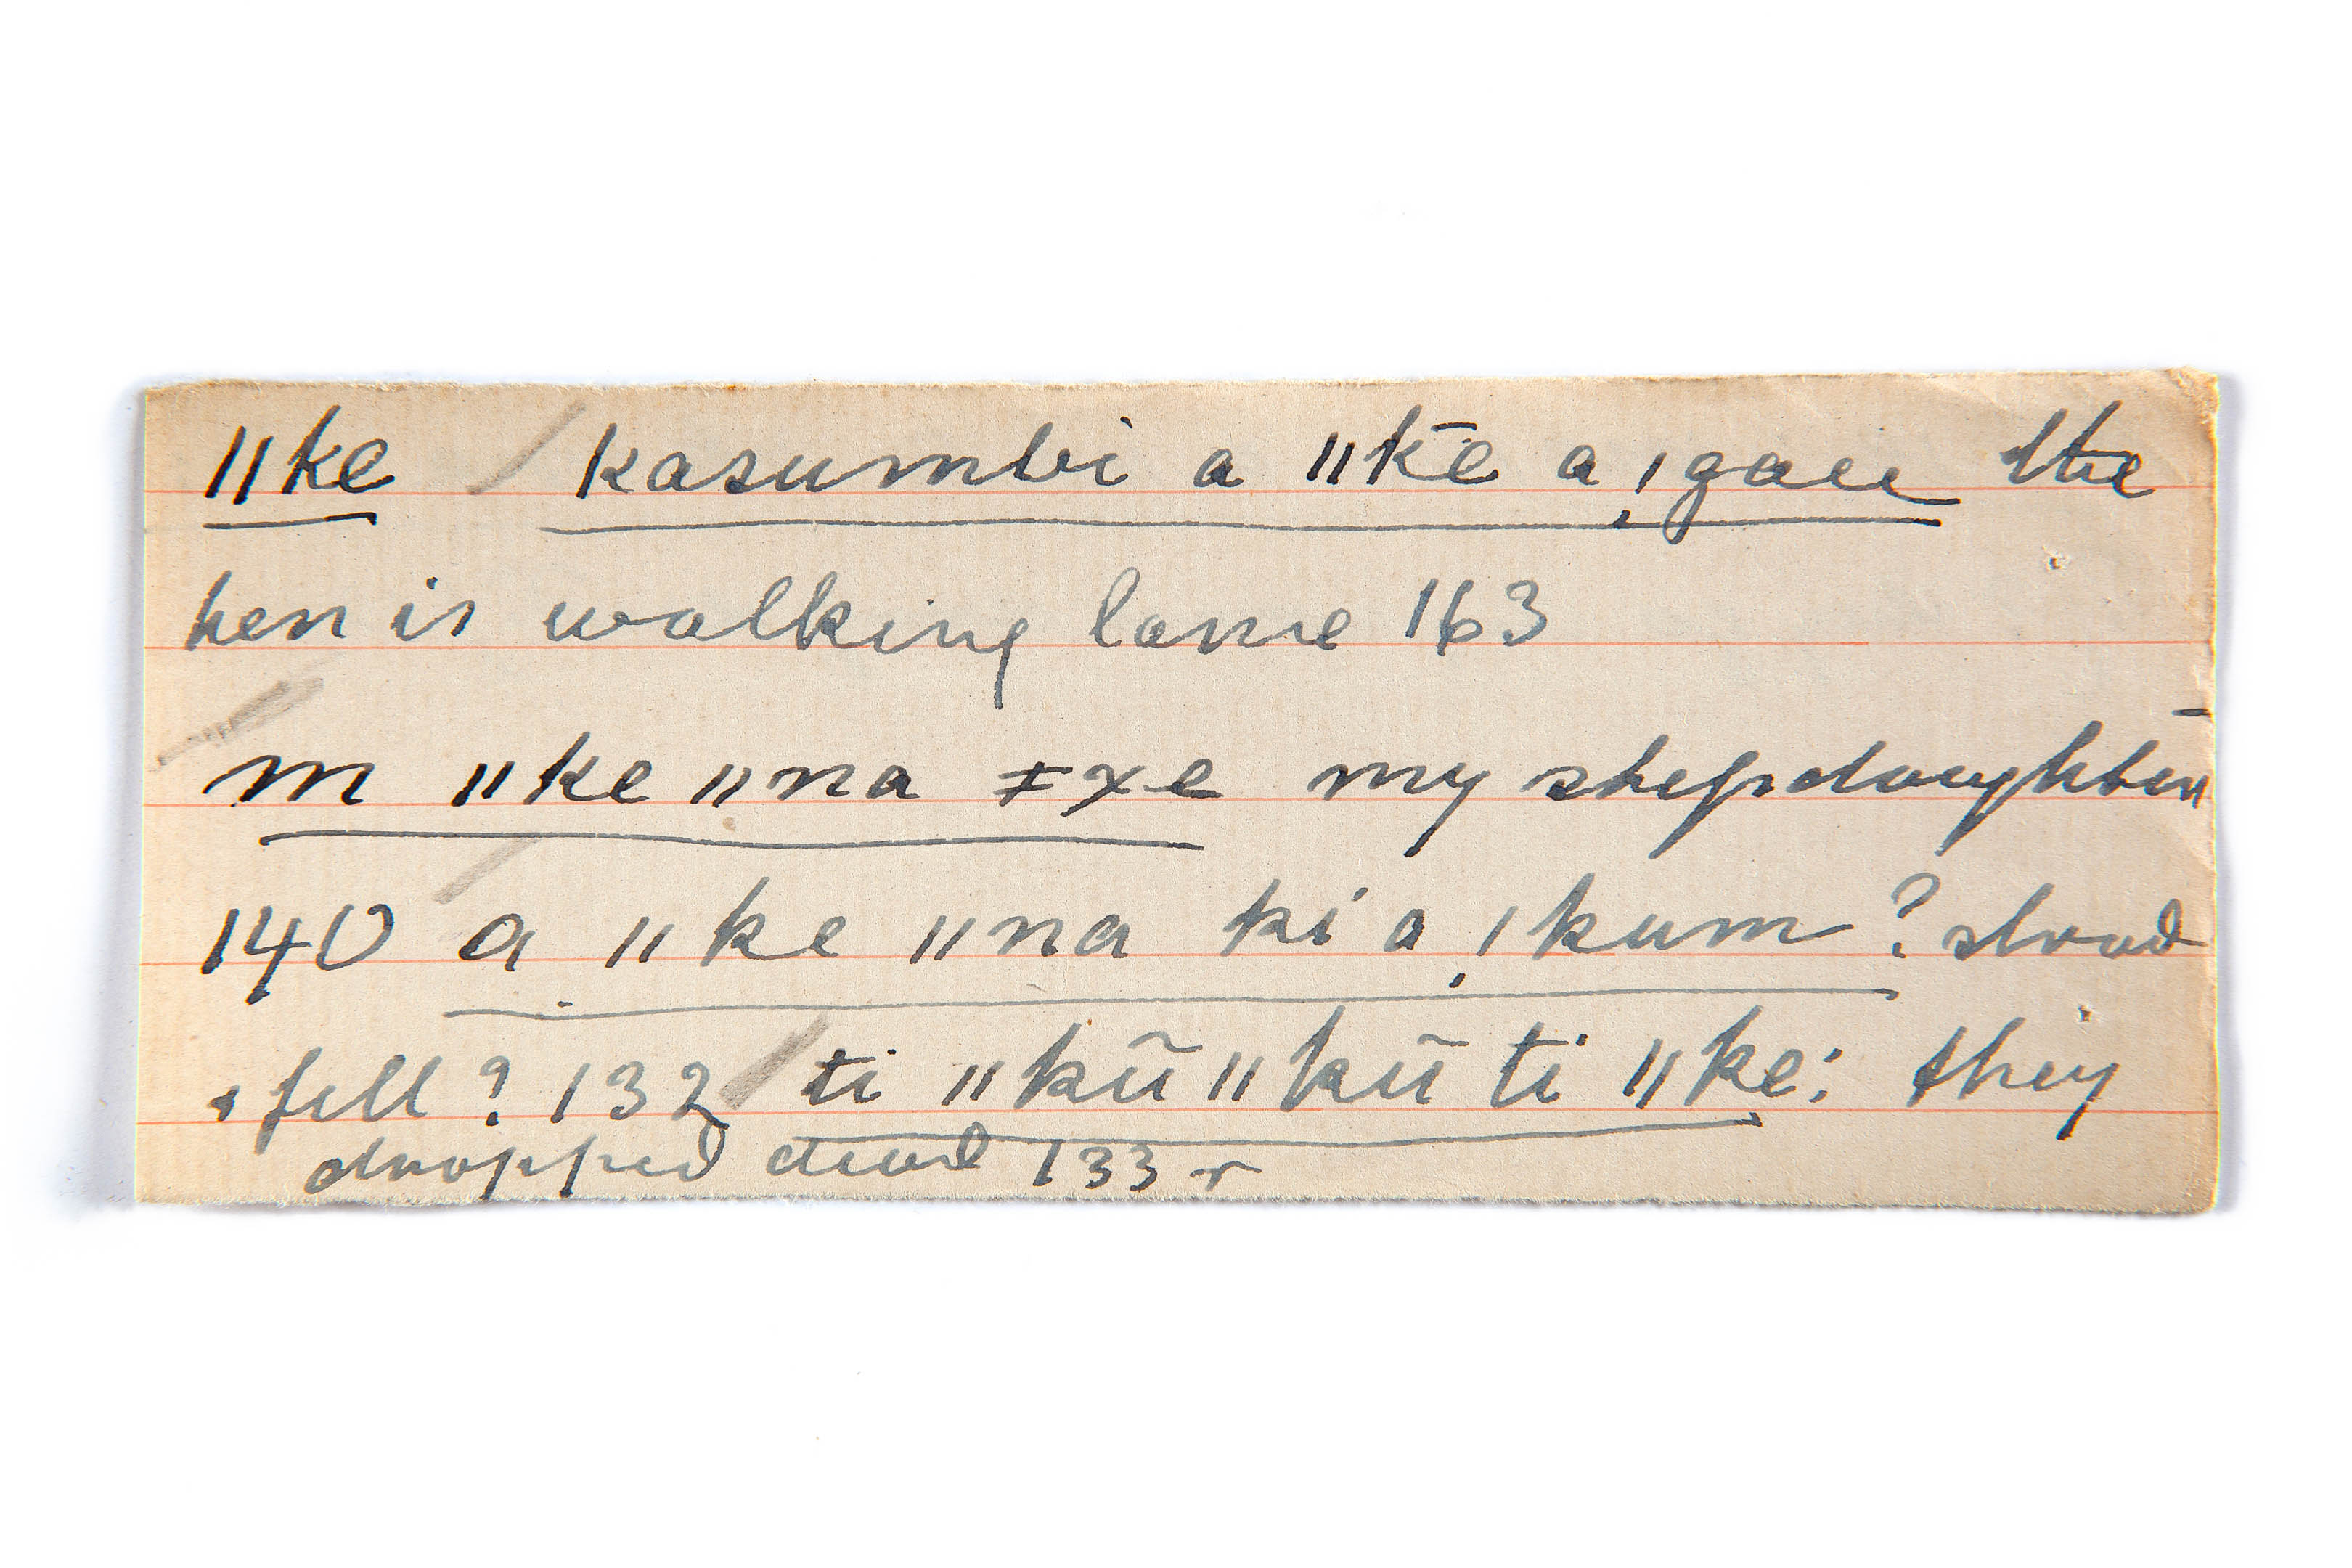 ǁke kasumbi a ǁkē a ǃgaee the
hen is walking lame 163
m ǁke ǁna ǂxe my stepdaughter
140 a ǁke ǁna ki a ǃkum? stood
+ fell? 132 ti ǁkũǁkũ ti ǁke: they
dropped dead 133 r